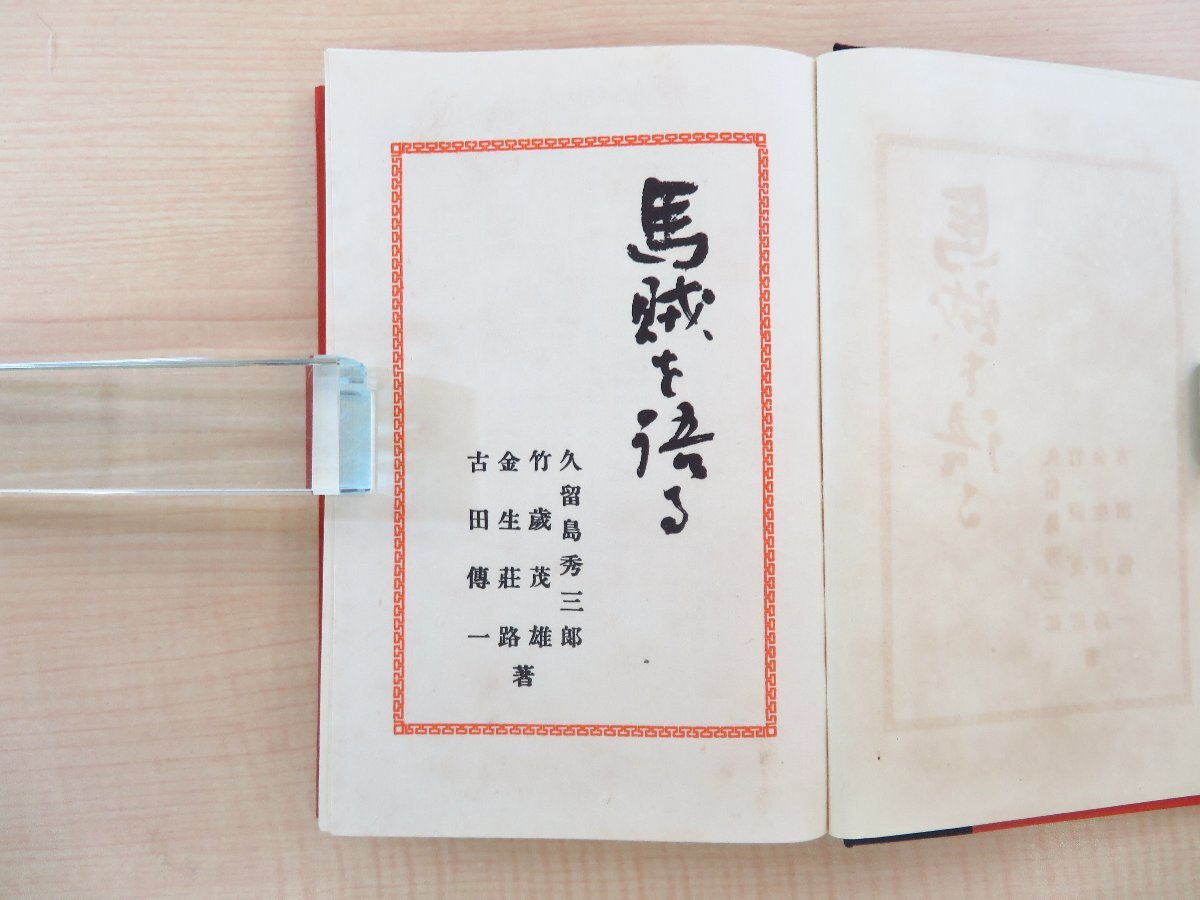 馬賊を語る
久留島秀三郎
竹歲茂雄
金生莊路
古田傳一
著